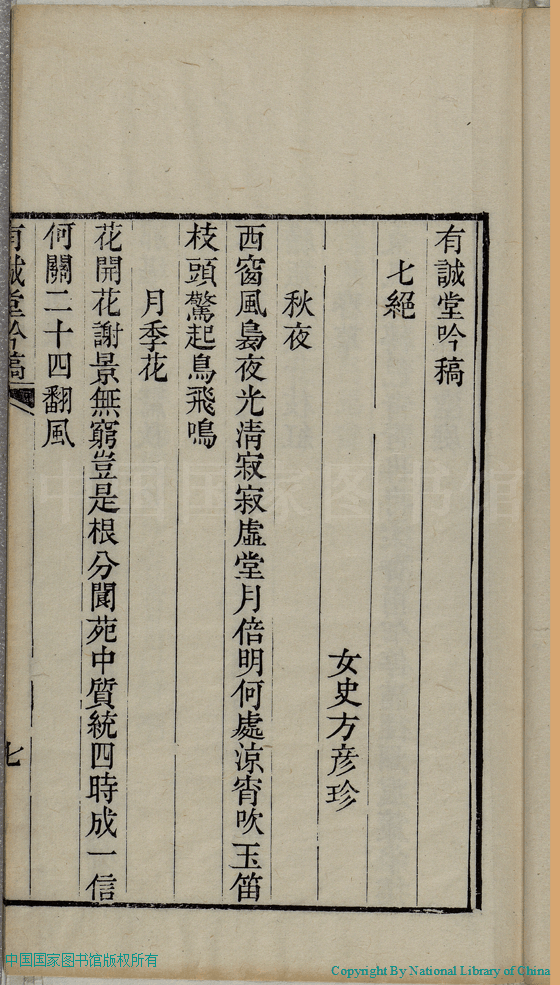 有誠堂吟稿
七絕
女史方彥珍
秋夜
西窗風裊夜光淸寂寂虛堂月倍明何處涼宵吹玉笛
枝頭驚起鳥飛鳴
月季花
花開花謝景無窮豈是根分閬苑中質統四時成一信
何關二十四翻風
有誠堂吟稿
七
中国国家图书馆
中国国家图书馆版权所有
Copyright By National Library of China